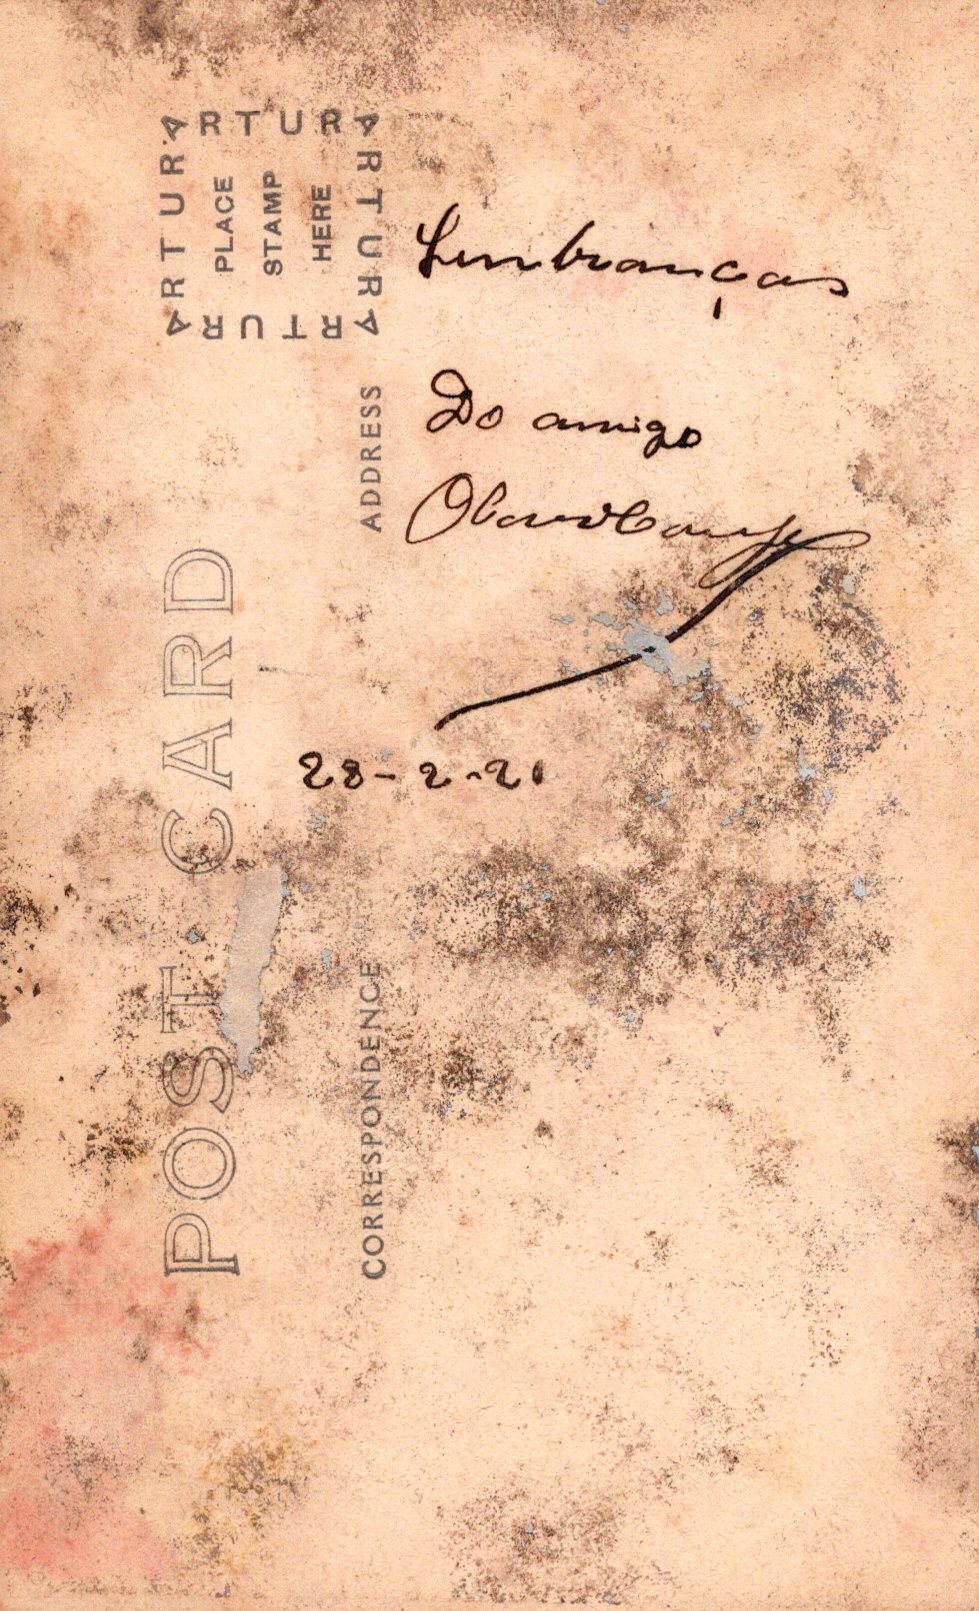 ARTURA
ARTURA
ARTURA
ARTURA
PLACE
STAMP
HERE
POST CARD
ADDRESS
CORRESPONDENCE
Lembranças
Do amigo
28-2-21